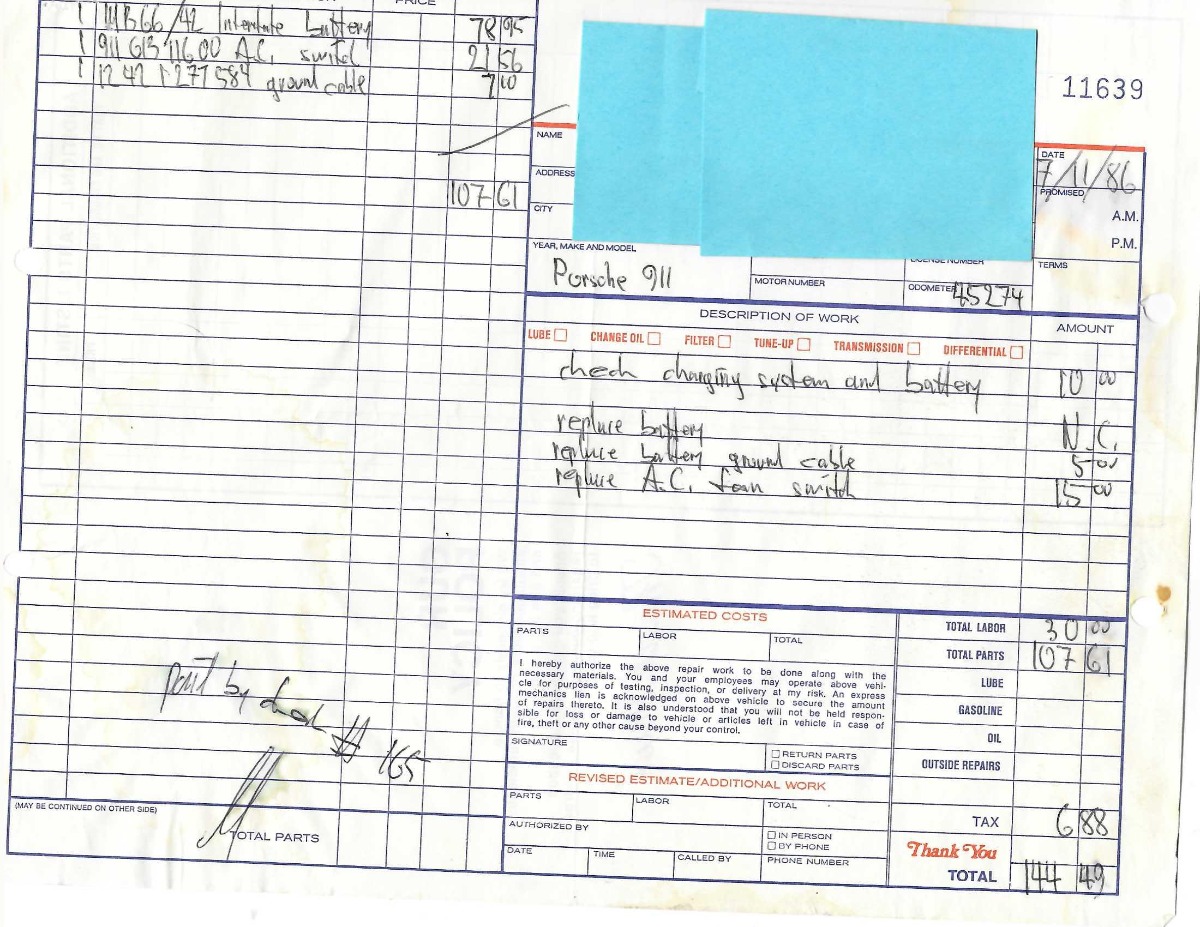 PRICE
1 MB66/42 Interstate battery 78 95
1 911 613 116 00 A.C. switch 21 56
1 12 42 1 277 584 ground cable 7 10
107 61
(MAY BE CONTINUED ON OTHER SIDE)
TOTAL PARTS
paid by check # 165
11639
NAME
ADDRESS
CITY
DATE
7/11/86
PROMISED
A.M.
P.M.
YEAR, MAKE AND MODEL
Porsche 911
LICENSE NUMBER
TERMS
MOTOR NUMBER
ODOMETER 45274
DESCRIPTION OF WORK
AMOUNT
LUBE CHANGE OIL FILTER TUNE-UP TRANSMISSION DIFFERENTIAL
check charging system and battery 10 00
replace battery N.C.
replace battery ground cable 5 00
replace A.C. fan switch 15 00
ESTIMATED COSTS
PARTS LABOR TOTAL
I hereby authorize the above repair work to be done along with the
necessary materials. You and your employees may operate above vehi-
cle for purposes of testing, inspection, or delivery at my risk. An express
mechanics lien is acknowledged on above vehicle to secure the amount
of repairs thereto. It is also understood that you will not be held respon-
sible for loss or damage to vehicle or articles left in vehicle in case of
fire, theft or any other cause beyond your control.
SIGNATURE
RETURN PARTS
DISCARD PARTS
REVISED ESTIMATE/ADDITIONAL WORK
PARTS LABOR TOTAL
AUTHORIZED BY
IN PERSON
BY PHONE
DATE TIME CALLED BY PHONE NUMBER
TOTAL LABOR 30 00
TOTAL PARTS 107 61
LUBE
GASOLINE
OIL
OUTSIDE REPAIRS
TAX 6 88
Thank You
TOTAL 144 49